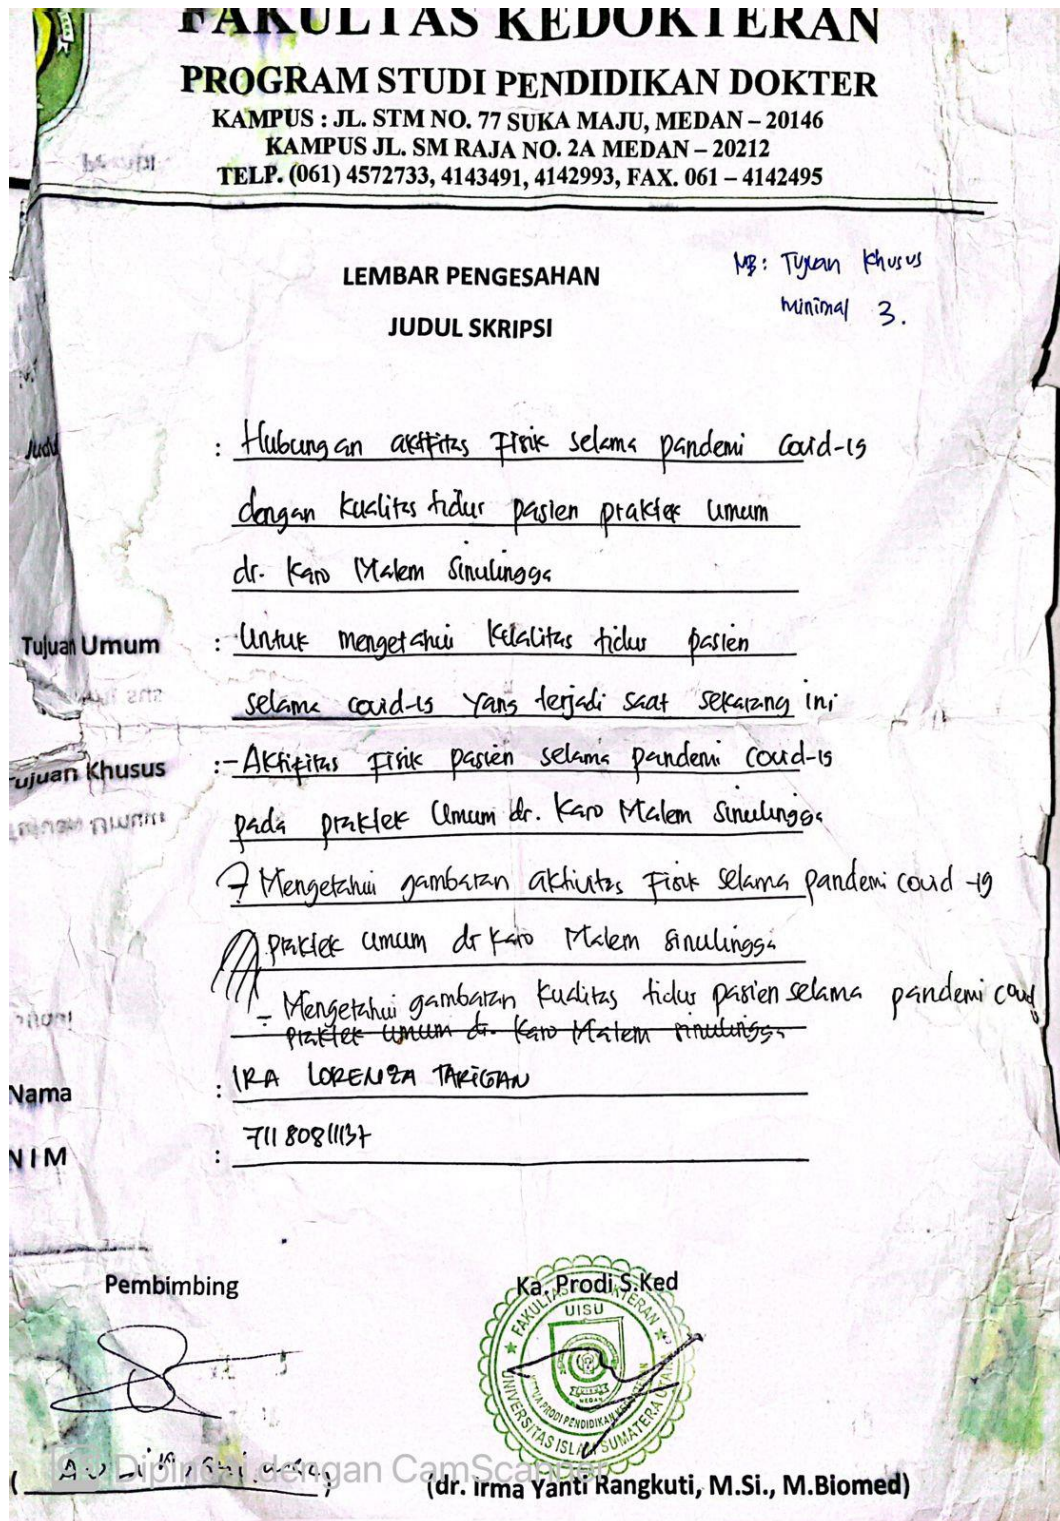 FAKULTAS KEDOKTERAN
PROGRAM STUDI PENDIDIKAN DOKTER
KAMPUS : JL. STM NO. 77 SUKA MAJU, MEDAN – 20146
KAMPUS JL. SM RAJA NO. 2A MEDAN – 20212
TELP. (061) 4572733, 4143491, 4142993, FAX. 061 – 4142495
LEMBAR PENGESAHAN
JUDUL SKRIPSI
NB: Tujuan Khusus
minimal 3.
Judul : Hubungan aktifitas Fisik selama pandemi Covid-19
dengan kualitas tidur pasien praktek umum
dr. Karo Malem Sinulingga
Tujuan Umum : Untuk mengetahui kualitas tidur pasien
selama covid-19 yang terjadi saat sekarang ini
Tujuan Khusus :- Aktifitas Fisik pasien selama pandemi Covid-19
pada praktek Umum dr. Karo Malem Sinulingga
Mengetahui gambaran aktivitas Fisik selama pandemi covid -19
praktek umum dr Karo Malem sinulingga
- Mengetahui gambaran kualitas tidur pasien selama pandemi covid
praktek umum dr. Karo Malem sinulingga
Nama : IRA LORENZA TARIGAN
NIM : 71180811137
Pembimbing
Ka. Prodi S.Ked
FAKULTAS KEDOKTERAN
UISU
MEDAN
KETUA PRODI PENDIDIKAN KEDOKTERAN
UNIVERSITAS ISLAM SUMATERA UTARA
Dipindai dengan CamScanner
(dr. Irma Yanti Rangkuti, M.Si., M.Biomed)